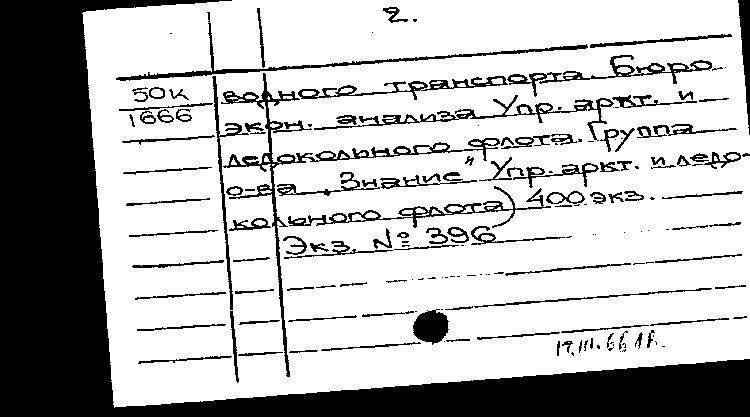 2.
50к водного транспорта. Бюро
1666 экон. анализа Упр. аркт. и
ледокольного флота. Группа
о-ва „Знание" Упр. аркт. и ледо-
кольного флота) 400 экз.
Экз. № 396